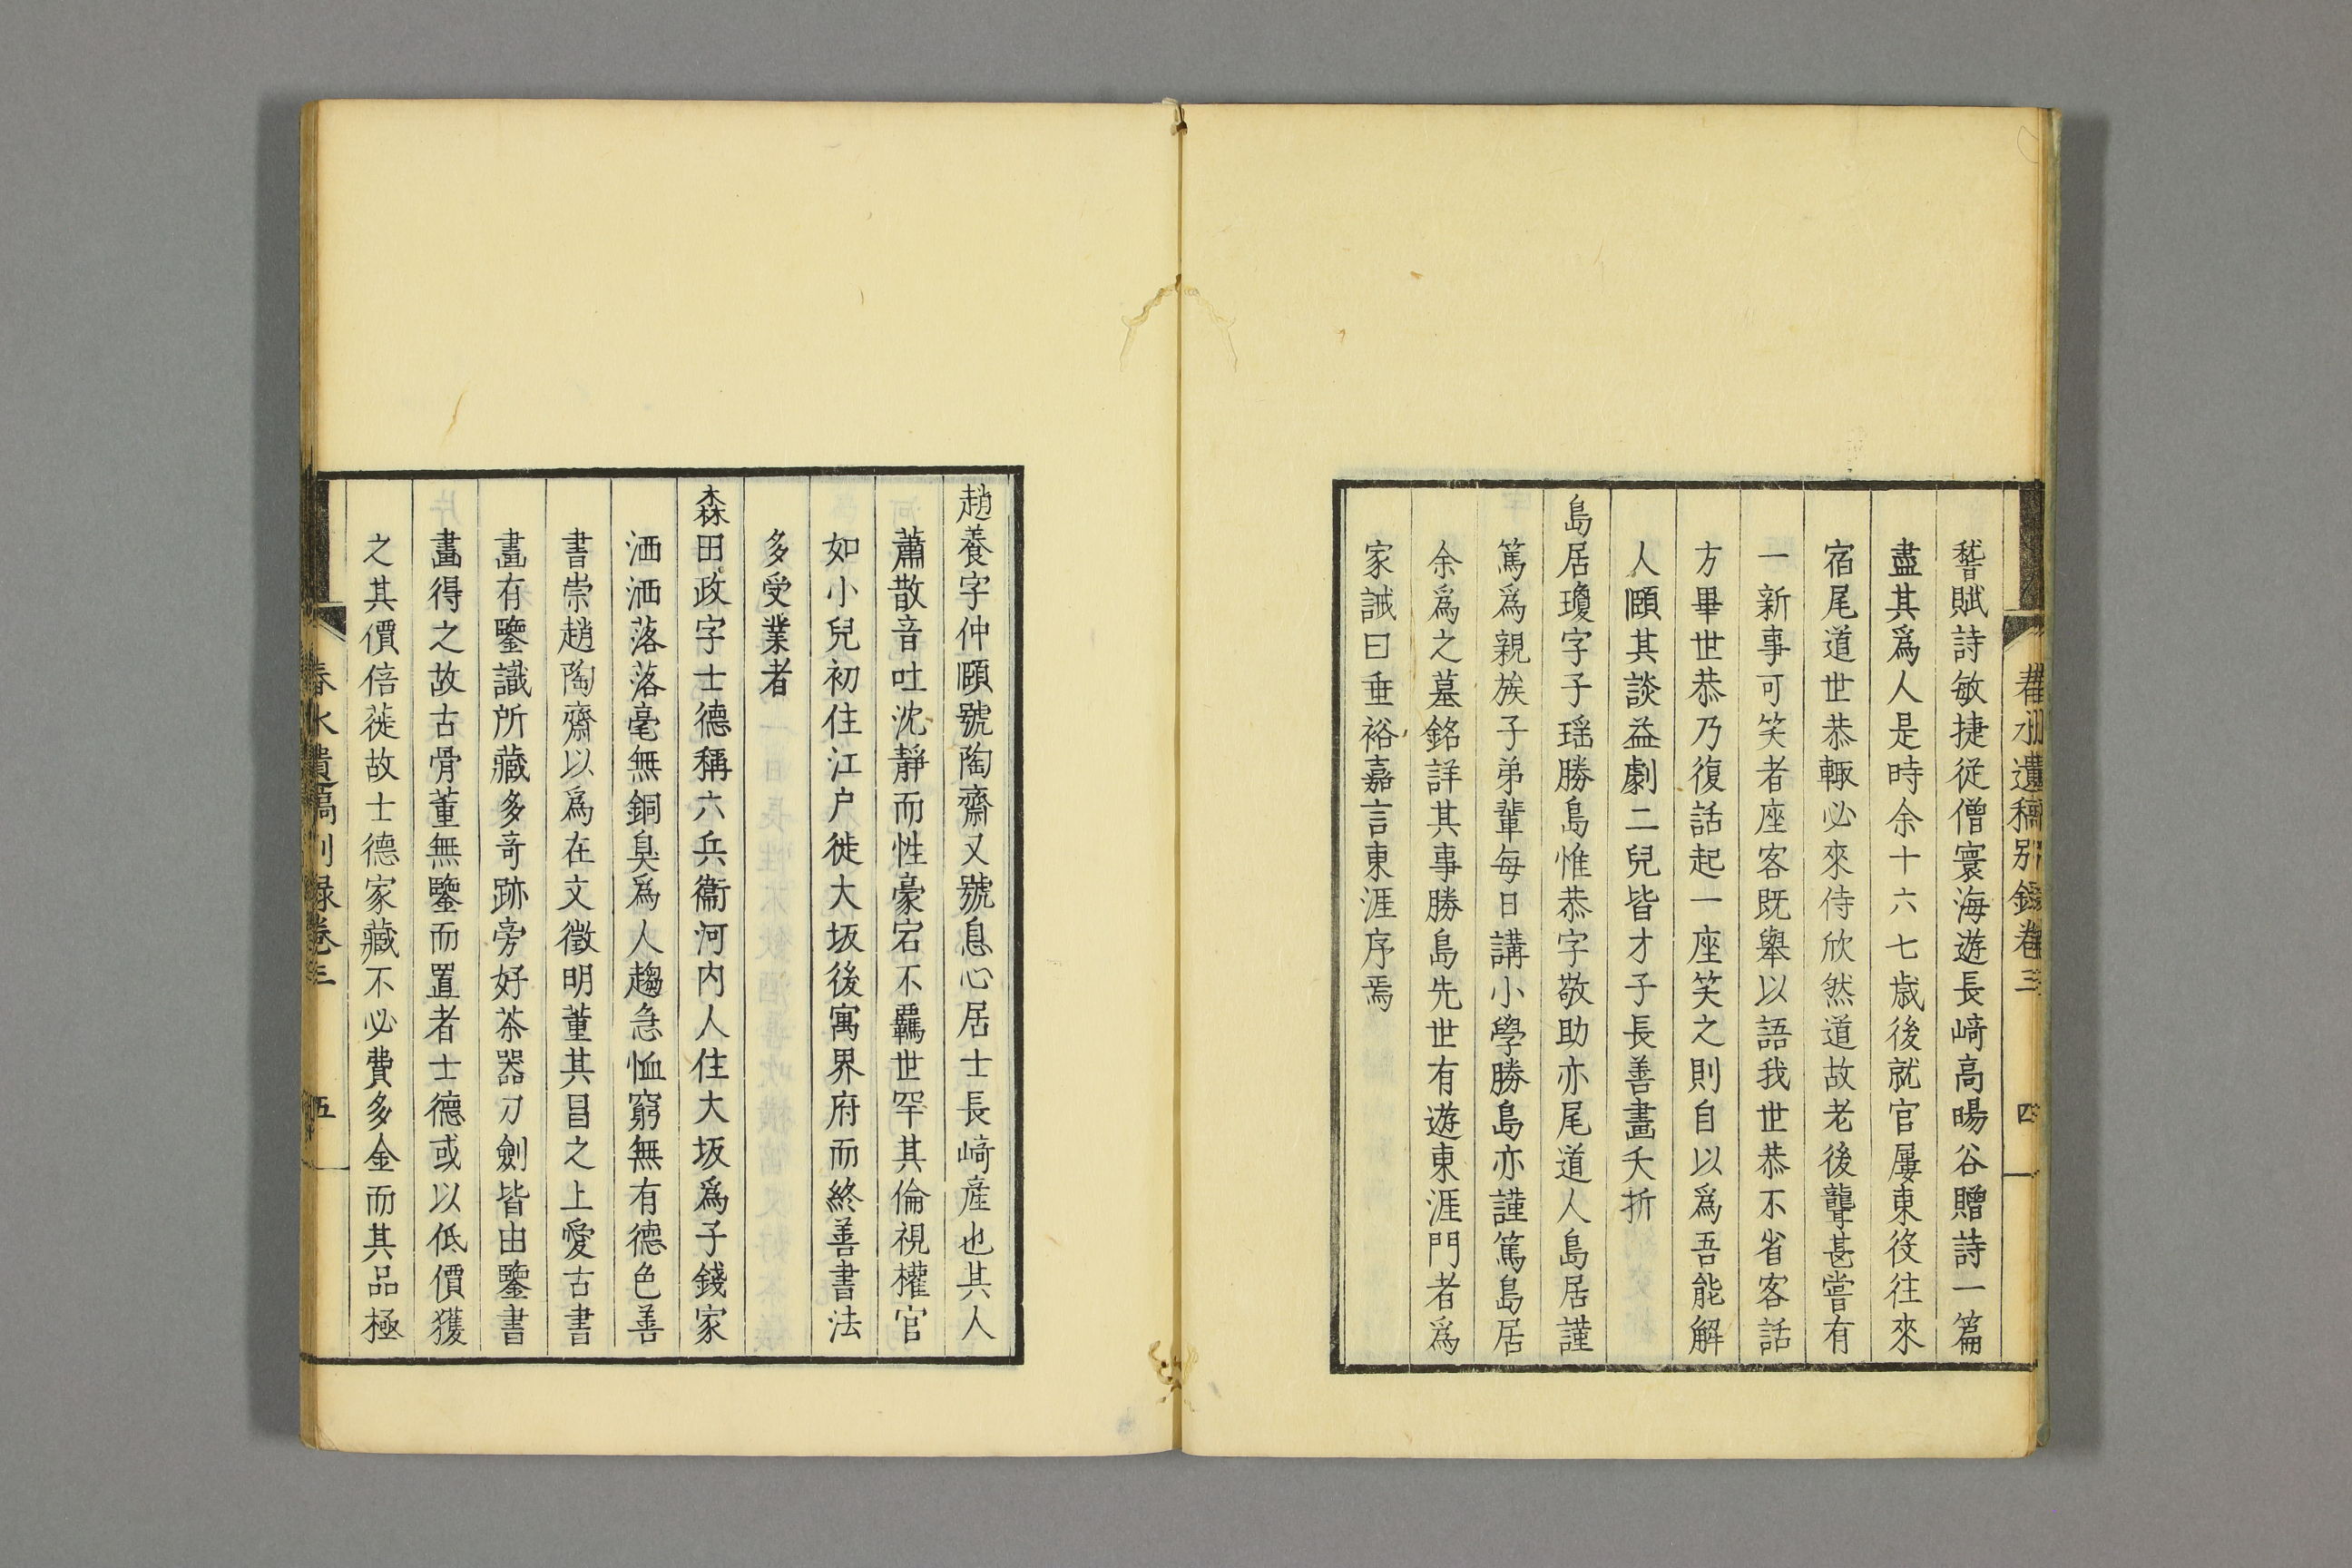 春水遺稿別錄卷三 四
嵆賦詩敏捷從僧寰海遊長﨑高暘谷贈詩一篇
盡其爲人是時余十六七歳後就官屢東役往來
宿尾道世恭輙必來侍欣然道故老後聾甚嘗有
一新事可笑者座客既舉以語我世恭不省客話
方畢世恭乃復話起一座笑之則自以爲吾能解
人頤其談益劇二兒皆才子長善畫夭折
島居瓊字子瑶勝島惟恭字敬助亦尾道人島居謹
篤爲親族子弟輩每日講小學勝島亦謹篤島居
余爲之墓銘詳其事勝島先世有遊東涯門者爲
家誡曰垂裕嘉言東涯序焉
趙養字仲頤號陶齋又號息心居士長﨑産也其人
蕭散音吐沈靜而性豪宕不羈世罕其倫視權官
如小兒初住江户徙大坂後寓界府而終善書法
多受業者
森田政字士德稱六兵衞河内人住大坂爲子錢家
洒洒落落毫無銅臭爲人趨急恤窮無有德色善
書崇趙陶齋以爲在文徵明董其昌之上愛古書
畫有鑒識所藏多竒跡旁好茶器刀劍皆由鑒書
畫得之故古骨董無鑒而置者士德或以低價獲
之其價倍蓰故士德家藏不必費多金而其品極
春水遺稿別錄卷三 五